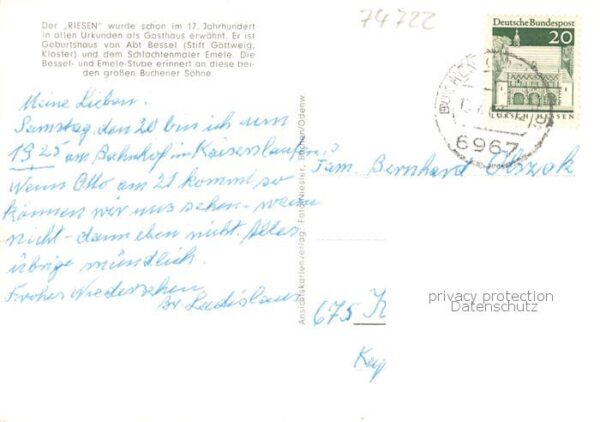 Der „RIESEN" wurde schon im 17. Jahrhundert
in allen Urkunden als Gasthaus erwähnt. Er ist
Geburtshaus von Abt Bessel (Stift Göttweig,
Kloster) und dem Schlachtenmaler Emele. Die
Bessel- und Emele-Stube erinnert an diese bei-
den großen Buchener Söhne.
74722
Deutsche Bundespost
20
LORSCH HESSEN
6967
Meine Lieben.
Samstag, den 20 bin ich um
19 25 am Bahnhof in Kaiserslautern
Wenn Otto am 21 kommt so
können wir uns sehen - wenn
nicht - dann eben nicht. Alles
übrige mündlich.
Frohes Wiedersehen
Br Ladislaus
Ansichtskartenverlag: Foto-Niesler, Buchen/Odenw.
Fam. Bernhard Olszok
675 K
privacy protection
Datenschutz